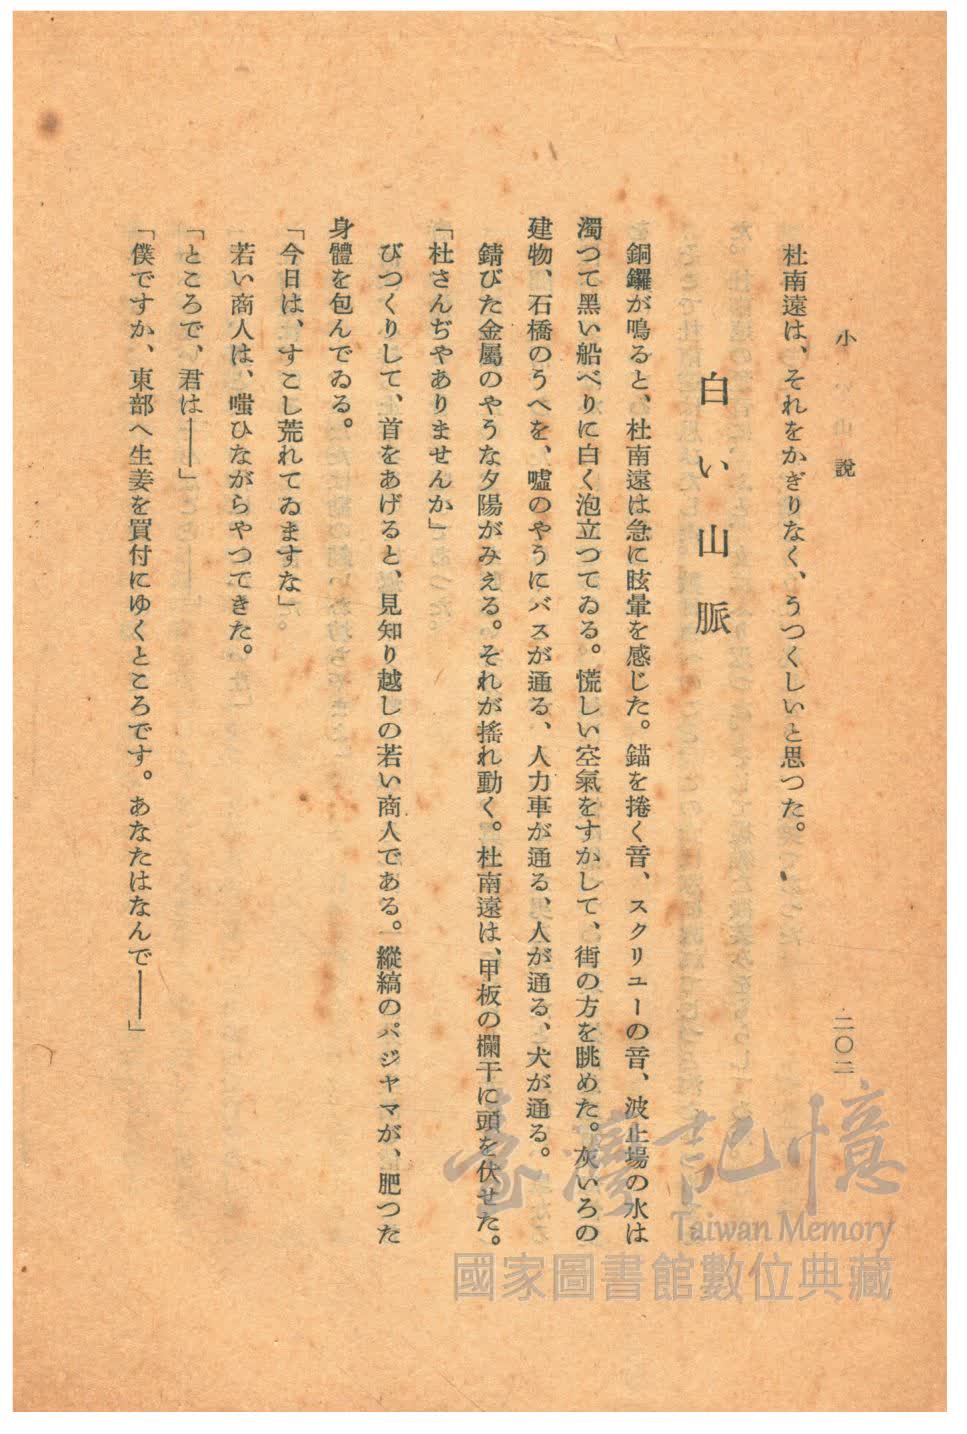 小說
二〇二
杜南遠は、それをかぎりなく、うつくしいと思つた。
白い山脈
銅鑼が鳴ると、杜南遠は急に眩暈を感じた。錨を捲く音、スクリユーの音、波止場の水は
濁つて黑い船べりに白く泡立つてゐる。慌しい空氣をすかして、街の方を眺めた。灰いろの
建物、石橋のうへを、噓のやうにバスが通る、人力車が通る、人が通る、犬が通る。
錆びた金屬のやうな夕陽がみえる。それが搖れ動く。杜南遠は、甲板の欄干に頭を伏せた。
「杜さんぢやありませんか」
びつくりして、首をあげると、見知り越しの若い商人である。縱縞のパジヤマが、肥つた
身體を包んでゐる。
「今日は、すこし荒れてゐますな」
若い商人は、嗤ひながらやつてきた。
「ところで、君は――」
「僕ですか、東部へ生姜を買付にゆくところです。あなたはなんで――」
臺灣記憶
Taiwan Memory
國家圖書館數位典藏